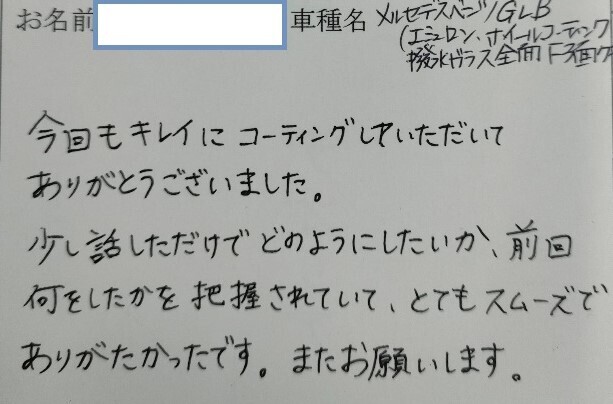 お名前 車種名 メルセデスベンツ/GLB
(エシュロン、ホイールコーティング
撥水ガラス全面 F3面ク
今回もキレイにコーティングしていただいて
ありがとうございました。
少し話しただけでどのようにしたいか、前回
何をしたかを把握されていて、とてもスムーズで
ありがたかったです。またお願いします。